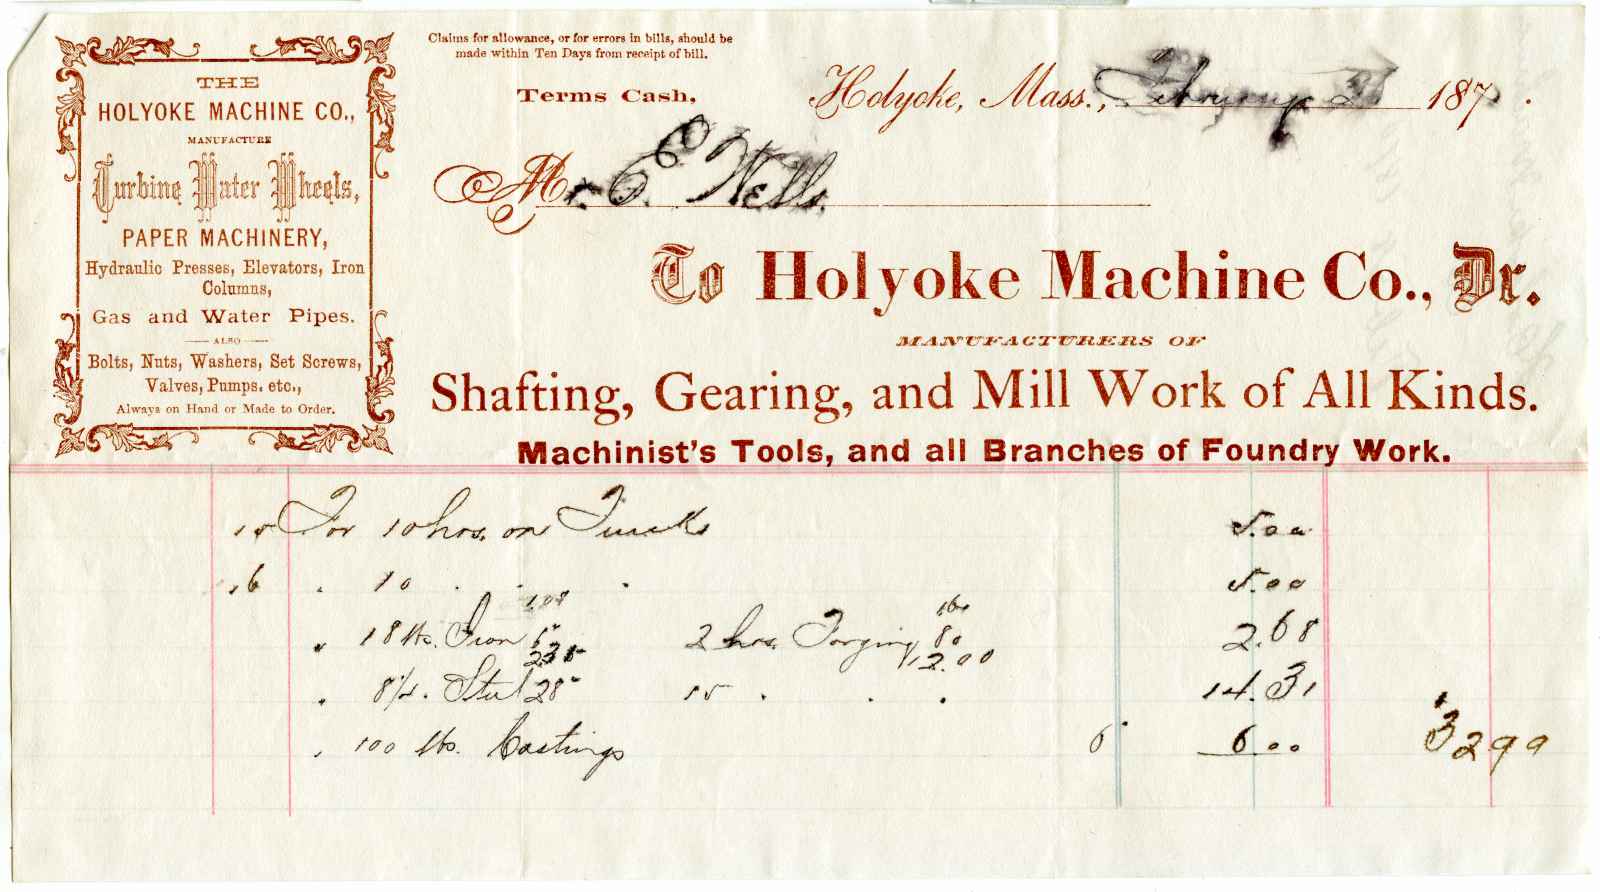 THE
HOLYOKE MACHINE CO.,
MANUFACTURE
Turbine Water Wheels,
PAPER MACHINERY,
Hydraulic Presses, Elevators, Iron
Columns,
Gas and Water Pipes.
ALSO
Bolts, Nuts, Washers, Set Screws,
Valves, Pumps, etc.,
Always on Hand or Made to Order.
Claims for allowance, or for errors in bills, should be
made within Ten Days from receipt of bill.
Terms Cash,
Holyoke, Mass., 187
Mr. E Wells.
To Holyoke Machine Co., Dr.
MANUFACTURERS OF
Shafting, Gearing, and Mill Work of All Kinds.
Machinist's Tools, and all Branches of Foundry Work.
15 For 10 hrs. on Trucks 5.00
16 " 10 " " " 5.00
1.08 1.60
" 18 lbs. Iron 6" 2 hrs. Forging 80 2.68
12.00
" 8¼ " Steel 28" 15 " " " 14.31
" 100 lbs. Castings 6" 6.00 $32 99